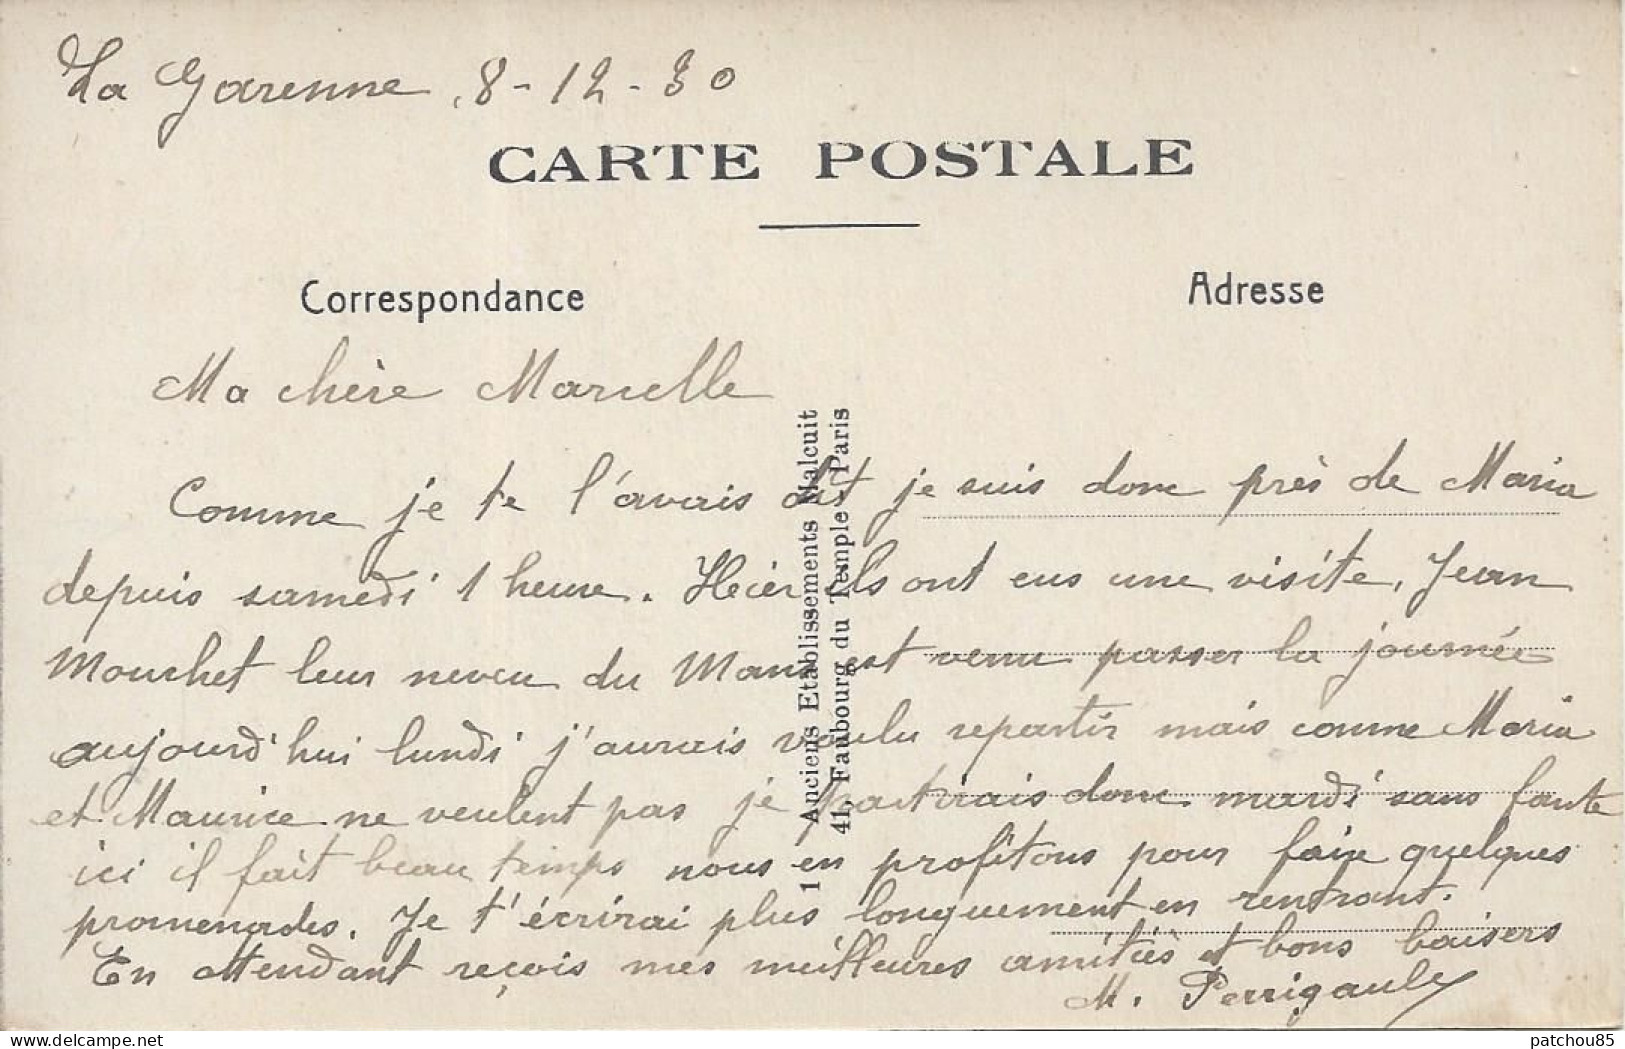 La Garenne, 8-12-30
CARTE POSTALE
Correspondance
Adresse
Ma chère Marcelle
Comme je te l'avais dit je suis donc près de Maria
depuis samedi 1 heure. Hier ils ont eus une visite, Jean
Mouchet leur neveu du Mans est venu passer la journée
aujourd'hui lundi j'aurais voulu repartir mais comme Maria
et Maurice ne veulent pas je partirais donc mardi sans faute
ici il fait beau temps nous en profitons pour faire quelques
promenades. Je t'écrirai plus longuement en rentrant.
En attendant reçois mes meilleures amitiés et bons baisers
M. Perrigault
1 Anciens Etablissements Malcuit
41, Faubourg du Temple - Paris
patchou85